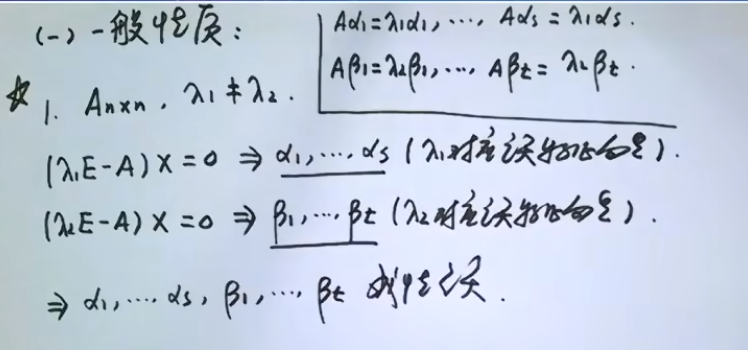 (一) 一般性质:
Aα₁=λ₁α₁, ⋯, Aαs=λ₁αs.
Aβ₁=λ₂β₁, ⋯, Aβt=λ₂βt.
☆ 1. An×n, λ₁≠λ₂.
(λ₁E-A)X=0 ⇒ α₁, ⋯, αs (λ₁对应无关特征向量).
(λ₂E-A)X=0 ⇒ β₁, ⋯ βt (λ₂对应无关特征向量).
⇒ α₁, ⋯ αs, β₁, ⋯, βt 线性无关.